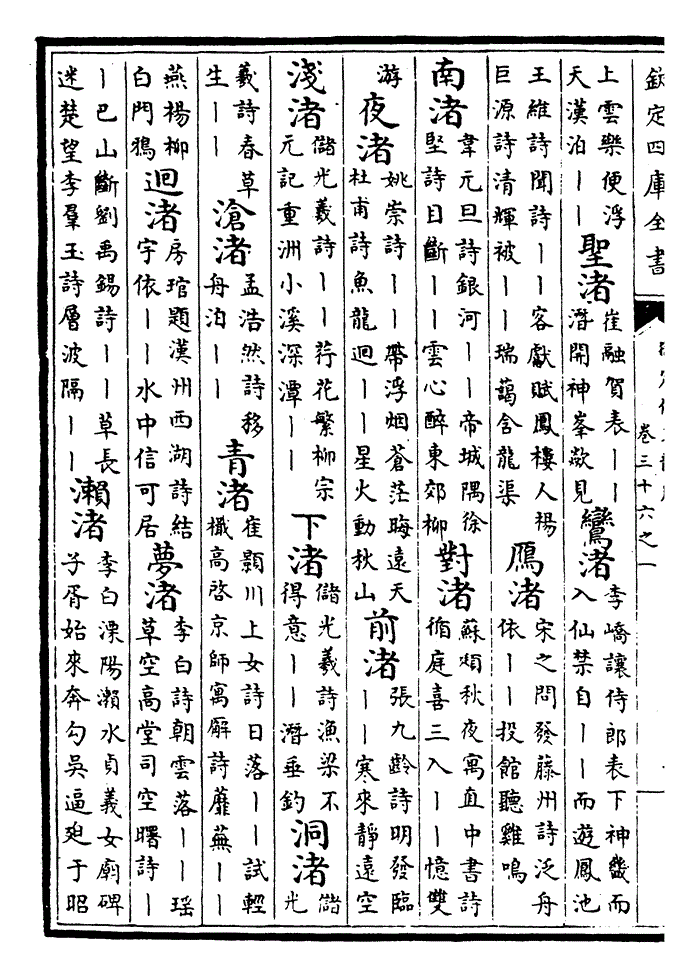 欽定四庫全書
卷三十六之一
上雲樂便浮
天漢泊丨丨
聖渚
崔融賀表丨丨
潛開神峯歘見
鸞渚
李嶠讓侍郎表下神畿而
入仙禁自丨丨而遊鳳池
王維詩聞詩丨丨客獻賦鳳樓人楊
巨源詩清輝被丨丨瑞藹含龍渠
鴈渚
宋之問發藤州詩泛舟
依丨丨投館聽雞鳴
南渚
韋元旦詩銀河丨丨帝城隅徐
堅詩目斷丨丨雲心醉東郊柳
對渚
蘇頲秋夜寓直中書詩
循庭喜三入丨丨憶雙
游
夜渚
姚崇詩丨丨帶浮烟蒼茫晦遠天
杜甫詩魚龍迴丨丨星火動秋山
前渚
張九齡詩明發臨
丨丨寒來靜遠空
淺渚
儲光羲詩丨丨荇花繁柳宗
元記重洲小溪深潭丨丨
下渚
儲光羲詩漁梁不
得意丨丨潛垂釣
洞渚
儲
光
羲詩春草
生丨丨
滄渚
孟浩然詩移
舟泊丨丨
青渚
崔顥川上女詩日落丨丨試輕
檝高啓京師寓廨詩蘼蕪丨丨
燕楊柳
白門鴉
迴渚
房琯題漢州西湖詩結
宇依丨丨水中信可居
夢渚
李白詩朝雲落丨丨瑶
草空高堂司空曙詩丨
丨巴山斷劉禹錫詩丨丨草長
迷楚望李羣玉詩層波隔丨丨
瀨渚
李白溧陽瀨水貞義女廟碑
子胥始來奔勾吳逼廹于昭